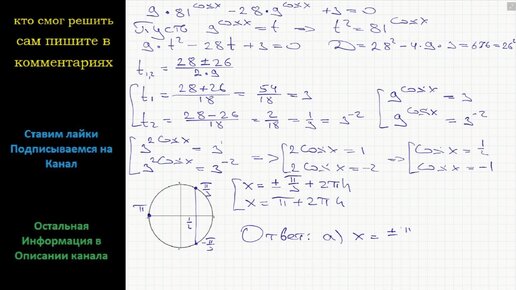 кто смог решить
сам пишите в
комментариях
Ставим лайки
Подписываемся на
Канал
Остальная
Информация в
Описании канала
9·81^cosx - 28·9^cosx + 3 = 0
Пусть 9^cosx = t → t² = 81^cosx
9·t² - 28t + 3 = 0 D = 28² - 4·9·3 = 676 = 26²
t₁,₂ = (28 ± 26)/(2·9)
t₁ = (28+26)/18 = 54/18 = 3
t₂ = (28-26)/18 = 2/18 = 1/9 = 3⁻²
9^cosx = 3
9^cosx = 3⁻²
3^2cosx = 3
3^2cosx = 3⁻²
=> 2cosx = 1
2cosx = -2
=> cosx = 1/2
cosx = -1
π π/3 1/2 -π/3
x = ± π/3 + 2πn
x = π + 2πn
Ответ: а) x = ± π